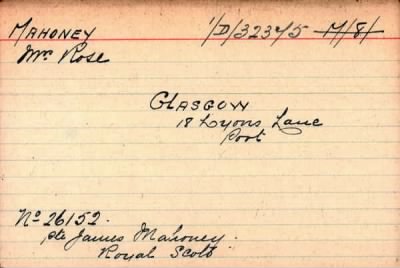 MAHONEY 1/D/32345 M/81
Mrs Rose
GLASGOW
18 Lyons Lane
Port
No 26152.
Pte James Mahoney.
Royal Scots